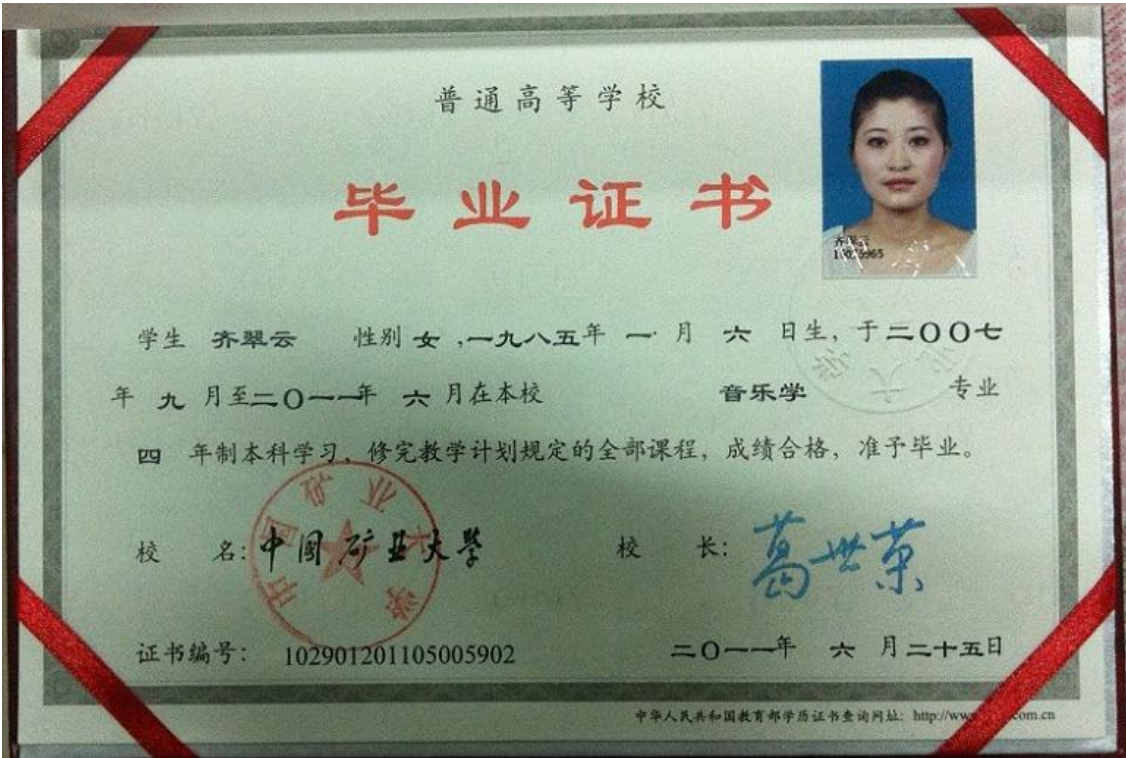 普通高等学校
毕业证书
齐翠云
学生 齐翠云 性别 女 ,一九八五年 一 月 六 日生, 于二〇〇七
年 九 月至二〇一一年 六 月在本校 音乐学 专业
四 年制本科学习, 修完教学计划规定的全部课程, 成绩合格, 准予毕业。
校 名: 中国矿业大学
校 长: 葛世荣
中国矿业大学
证书编号: 102901201105005902
二〇一一年 六 月二十五日
中华人民共和国教育部学历证书查询网址: http://www com.cn